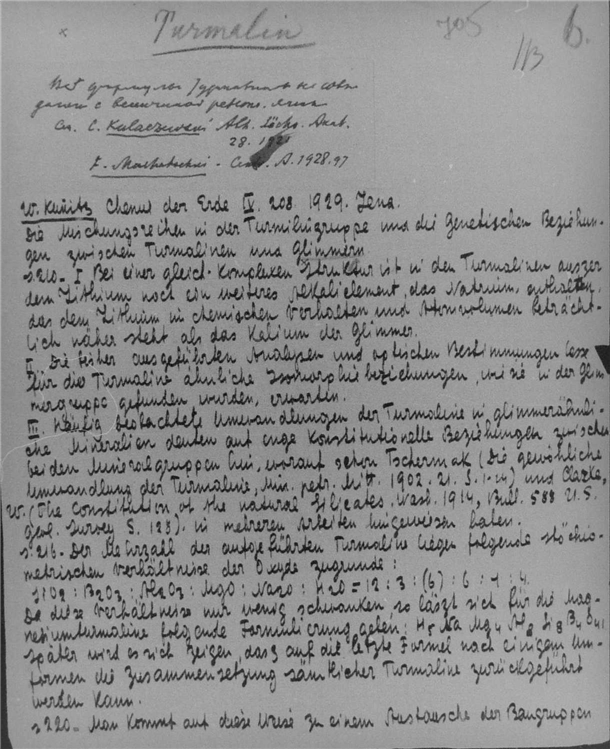 Turmalin
705
113 6.
с величиной
См. C. Kulaszewski Abh. sächs. Akad.
28. 1921
F. Machatschki - Centr. A. 1928. 97
W. Kunitz Chemie der Erde IV. 208. 1929. Jena.
Die Mischungsreihen in der Turmalingruppe und die genetischen Beziehun-
gen zwischen Turmalinen und Glimmern
s. 210. I Bei einer gleich komplexen Struktur ist in den Turmalinen auszer
dem Lithium noch ein weiteres Alkalielement, das Natrium, enthalten,
das dem Lithium in chemischen Verhalten und Atomvolumen beträcht-
lich näher steht als das Kalium der Glimmer.
II. Die bisher ausgeführten Analysen und optischen Bestimmungen lasse
für die Turmaline ähnliche Isomorphiebeziehungen, wie sie in der Glim-
mergruppe gefunden wurden, erwarten.
III. Häufig beobachtete Umwandlungen der Turmaline in glimmerähnli-
che Mineralien deuten auf enge Konstitutionelle Beziehungen zwischen
beiden Mineralgruppen hin, worauf schon Tschermak (Die gewöhnliche
Umwandlung der Turmaline, Min. petr. Mitt. 1902. 21. S. 1-14) und Clarke,
W. (The Constitution of the natural Silicates, Wash. 1914, Bull. 588 U.S.
Geol. Survey S. 123). in mehreren Arbeiten hingewiesen haben.
s. 216. Der Mehrzahl der aufgeführten Turmaline liegen folgende stöchio-
metrischen Verhältnisse der Oxyde zugrunde:
SiO2 : B2O3 : Al2O3 : MgO : Na2O : H2O = 12 : 3 : (6) : 6 : 1 : 4.
Da diese Verhältnisse nur wenig schwanken, so läszt sich für die Mag-
nesiumturmaline folgende Formulierung geben: Mg4
später wird es sich zeigen, dasz auf die letzte Formel nach einigem Um-
formen die Zusammensetzung sämtlicher Turmaline zurückgeführt
werden kann.
s. 220. Man kommt auf diese Weise zu einem Austausche der Baugruppen